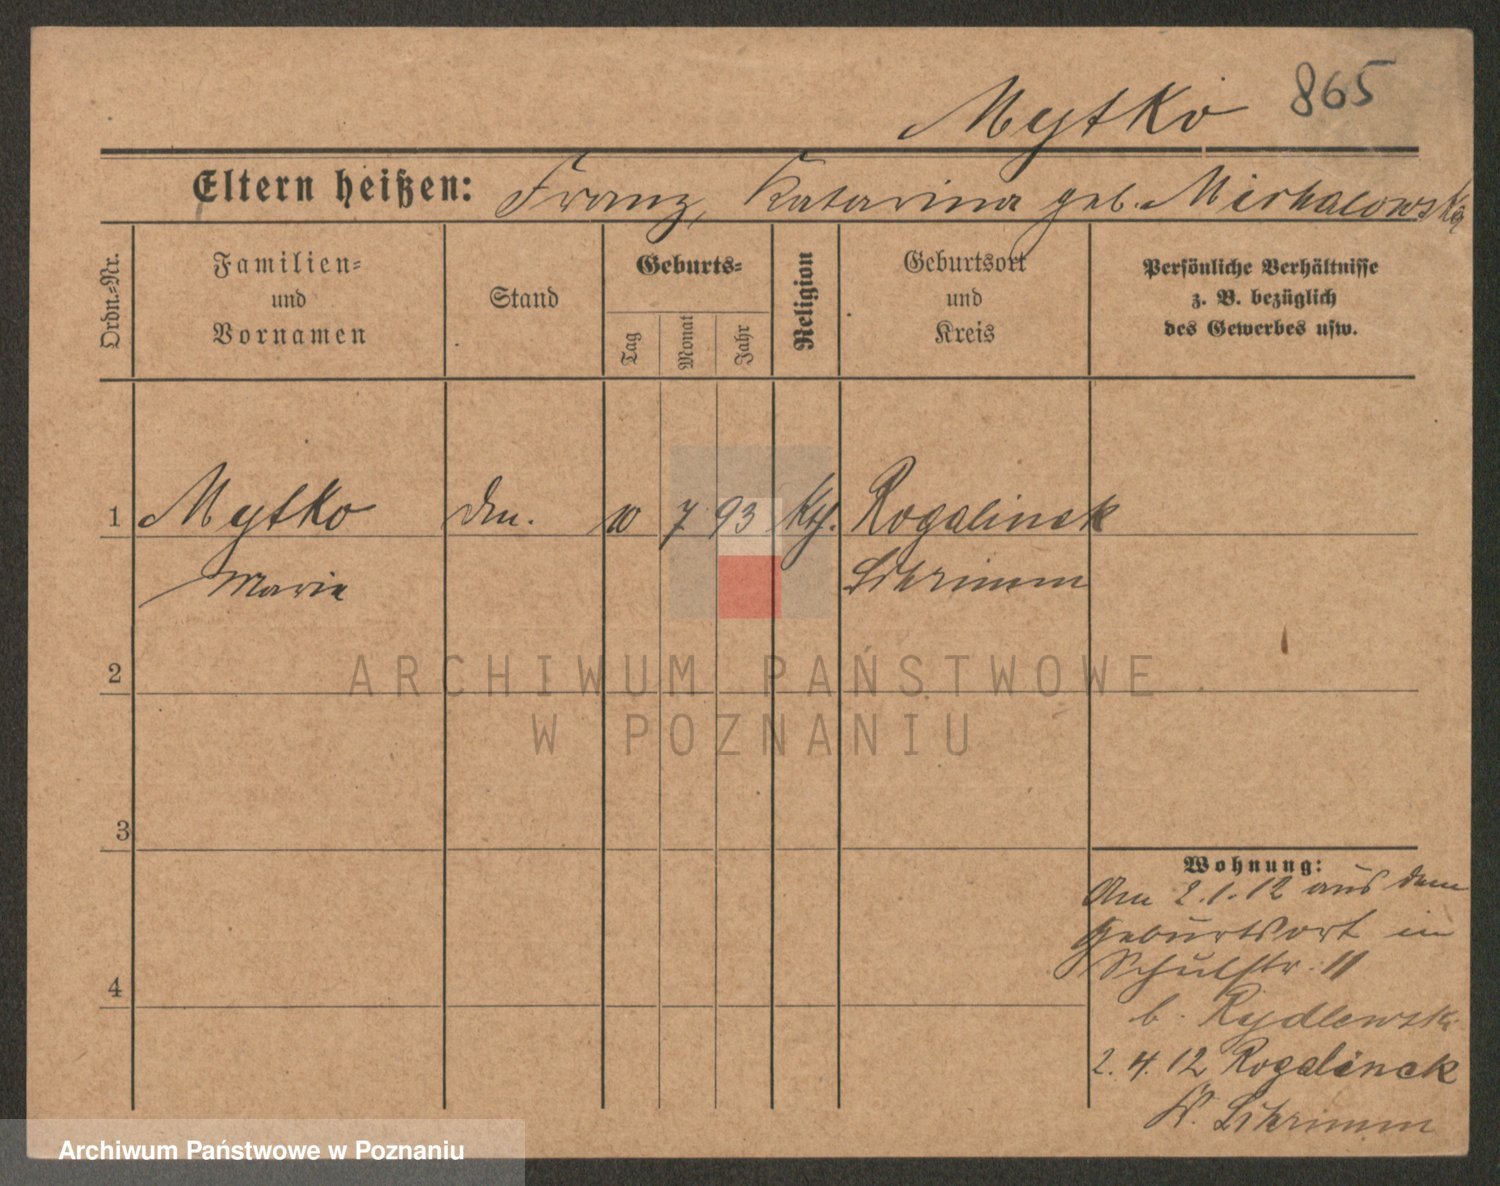 Mytko 865
Eltern heißen: Franz, Katarina geb. Michalowska
Ordn.-Nr.
Familien-
und
Vornamen
Stand
Geburts-
Tag
Monat
Jahr
Religion
Geburtsort
und
Kreis
Persönliche Verhältnisse
z. B. bezüglich
des Gewerbes usw.
1 Mytko 10 7 93 Kth. Rogalinek
Marie Schrimm
2
3
4
Wohnung:
Am 2.1.12 aus dem
Geburtsort in
Schulstr. 11
b. Rydlewski
2.4.12 Rogalinek
K. Schrimm
ARCHIWUM PAŃSTWOWE
W POZNANIU
Archiwum Państwowe w Poznaniu